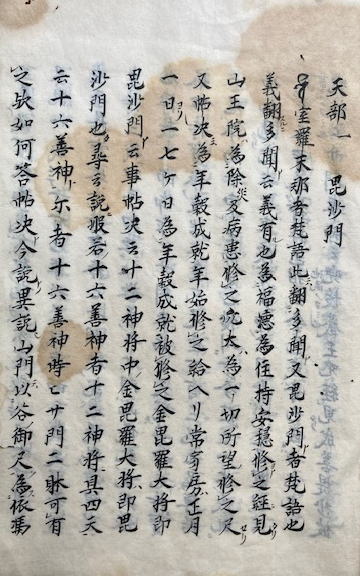 天部一 毘沙門
室羅末那者梵語此翻多聞又毘沙門者梵語也
義翻多聞云義有也為福徳為住持安穏修之経見
山王院為除災病患修之次太為一切所望修之尺
又帖决為年穀成就年始修之給ヘリ常寺房正月
一日一七ケ日為年穀成就被修之金毘羅大将即
毘沙門云事帖决云十二神将中金毘羅大将即毘
沙門也尋云説般若十六善神者十二神将具四天
云十六善神尓者十六善神時七サ門二躰可有
之欤如何答帖决今説異説山門以谷御尺為依馮